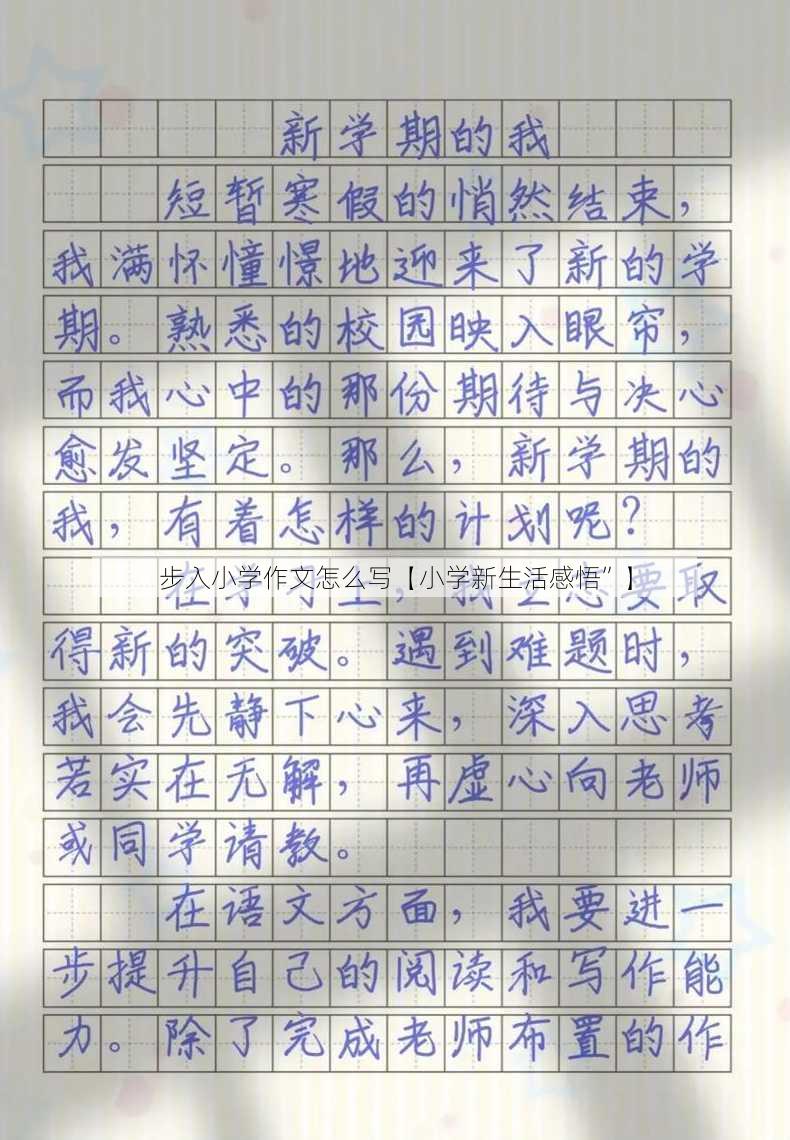 新学期的我
短暂寒假的悄然结束，
我满怀憧憬地迎来了新的学
期。熟悉的校园映入眼帘，
而我心中的那份期待与决心
愈发坚定。那么，新学期的
我，有着怎样的计划呢？
步入小学作文怎么写【小学新生活感悟”】
在学习上，我 要取
得新的突破。遇到难题时，
我会先静下心来，深入思考
若实在无解，再虚心向老师
或同学请教。
在语文方面，我要进一
步提升自己的阅读和写作能
力。除了完成老师布置的作